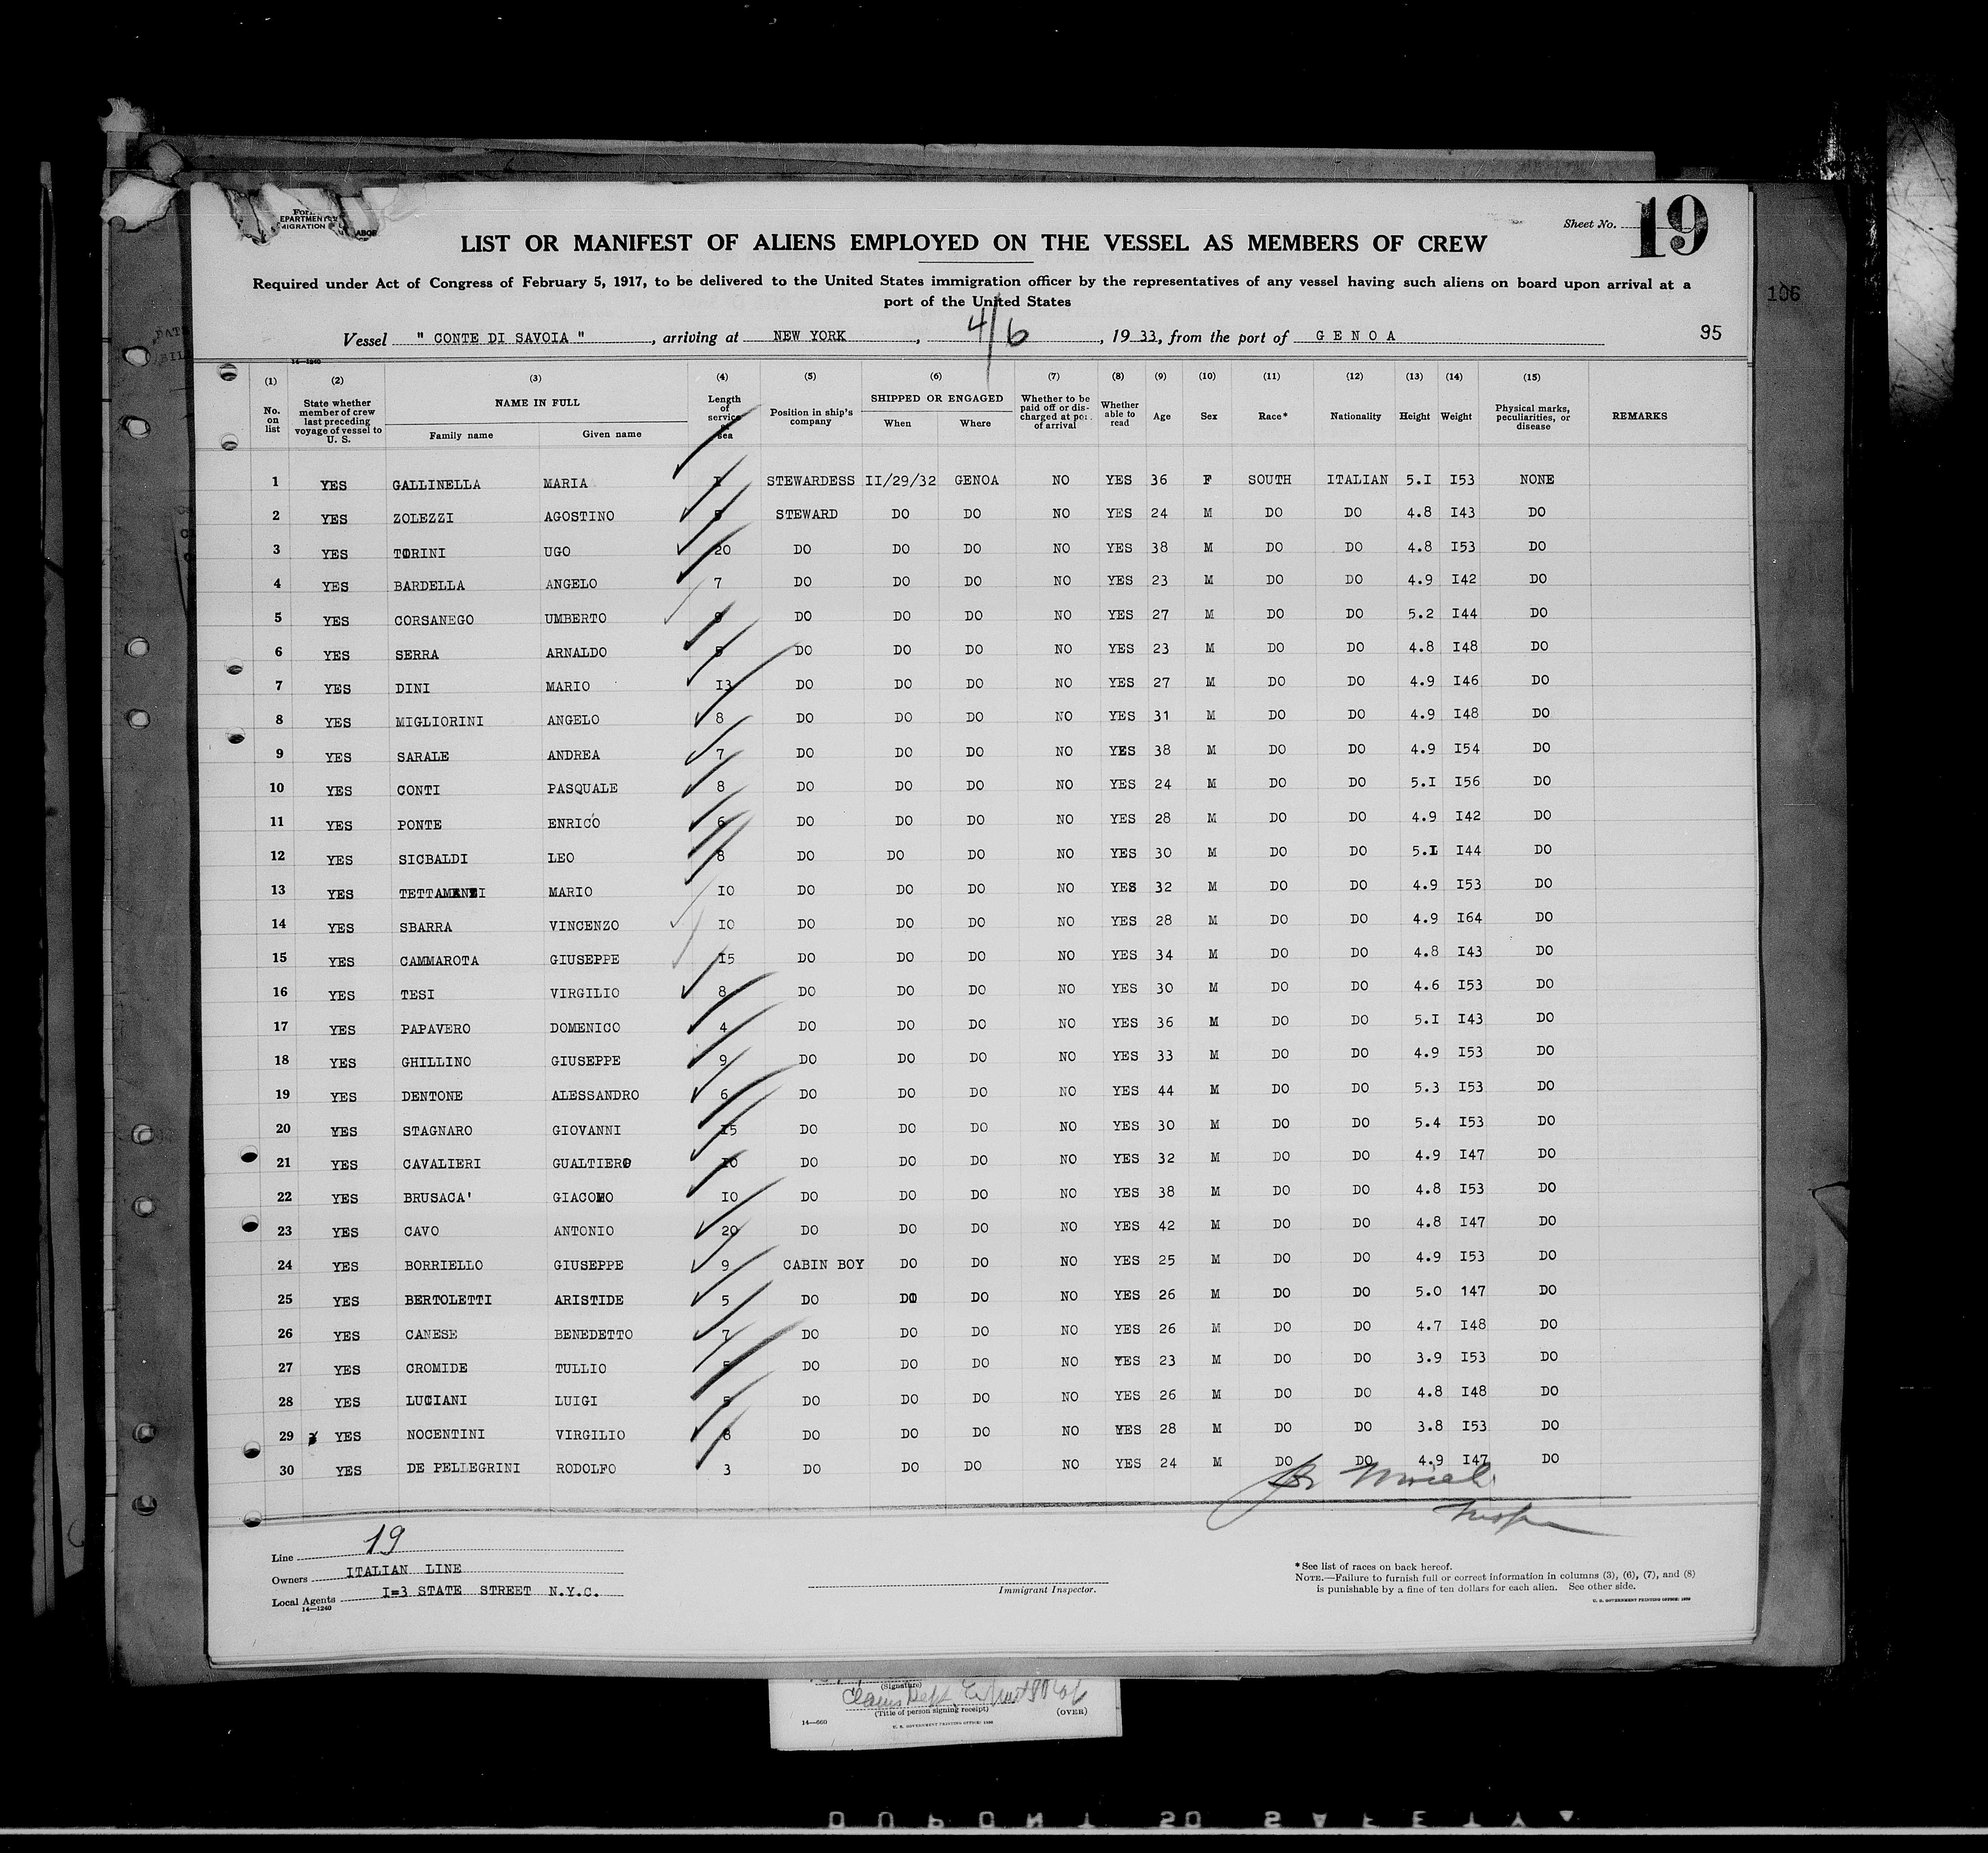 Sheet No. 19
EPARTMENT
MIGRATION
ABOR
LIST OR MANIFEST OF ALIENS EMPLOYED ON THE VESSEL AS MEMBERS OF CREW
Required under Act of Congress of February 5, 1917, to be delivered to the United States immigration officer by the representatives of any vessel having such aliens on board upon arrival at a
port of the United States
106
Vessel " CONTE DI SAVOIA ", arriving at NEW YORK, 4/6, 1933, from the port of GENOA 95
14—1240
(1) (2) (3) (4) (5) (6) (7) (8) (9) (10) (11) (12) (13) (14) (15)
No. on list State whether member of crew last preceding voyage of vessel to U. S. NAME IN FULL Family name Given name Length of service at sea Position in ship's company SHIPPED OR ENGAGED When Where Whether to be paid off or discharged at port of arrival Whether able to read Age Sex Race* Nationality Height Weight Physical marks, peculiarities, or disease REMARKS
1 YES GALLINELLA MARIA I STEWARDESS II/29/32 GENOA NO YES 36 F SOUTH ITALIAN 5.I I53 NONE
2 YES ZOLEZZI AGOSTINO 5 STEWARD DO DO NO YES 24 M DO DO 4.8 I43 DO
3 YES TORINI UGO 20 DO DO DO NO YES 38 M DO DO 4.8 I53 DO
4 YES BARDELLA ANGELO 7 DO DO DO NO YES 23 M DO DO 4.9 I42 DO
5 YES CORSANEGO UMBERTO DO DO DO NO YES 27 M DO DO 5.2 I44 DO
6 YES SERRA ARNALDO 5 DO DO DO NO YES 23 M DO DO 4.8 I48 DO
7 YES DINI MARIO I3 DO DO DO NO YES 27 M DO DO 4.9 I46 DO
8 YES MIGLIORINI ANGELO 8 DO DO DO NO YES 31 M DO DO 4.9 I48 DO
9 YES SARALE ANDREA 7 DO DO DO NO YES 38 M DO DO 4.9 I54 DO
10 YES CONTI PASQUALE 8 DO DO DO NO YES 24 M DO DO 5.I I56 DO
11 YES PONTE ENRICO 6 DO DO DO NO YES 28 M DO DO 4.9 I42 DO
12 YES SICBALDI LEO 8 DO DO DO NO YES 30 M DO DO 5.I I44 DO
13 YES MARIO IO DO DO DO NO YES 32 M DO DO 4.9 I53 DO
14 YES SBARRA VINCENZO IO DO DO DO NO YES 28 M DO DO 4.9 I64 DO
15 YES CAMMAROTA GIUSEPPE I5 DO DO DO NO YES 34 M DO DO 4.8 I43 DO
16 YES TESI VIRGILIO 8 DO DO DO NO YES 30 M DO DO 4.6 I53 DO
17 YES PAPAVERO DOMENICO 4 DO DO DO NO YES 36 M DO DO 5.I I43 DO
18 YES GHILLINO GIUSEPPE 9 DO DO DO NO YES 33 M DO DO 4.9 I53 DO
19 YES DENTONE ALESSANDRO 6 DO DO DO NO YES 44 M DO DO 5.3 I53 DO
20 YES STAGNARO GIOVANNI I5 DO DO DO NO YES 30 M DO DO 5.4 I53 DO
21 YES CAVALIERI GUALTIERO IO DO DO DO NO YES 32 M DO DO 4.9 I47 DO
22 YES BRUSACA' GIACOMO IO DO DO DO NO YES 38 M DO DO 4.8 I53 DO
23 YES CAVO ANTONIO 20 DO DO DO NO YES 42 M DO DO 4.8 I47 DO
24 YES BORRIELLO GIUSEPPE 9 CABIN BOY DO DO NO YES 25 M DO DO 4.9 I53 DO
25 YES BERTOLETTI ARISTIDE 5 DO DO DO NO YES 26 M DO DO 5.0 147 DO
26 YES CANESE BENEDETTO 7 DO DO DO NO YES 26 M DO DO 4.7 I48 DO
27 YES CROMIDE TULLIO 5 DO DO DO NO YES 23 M DO DO 3.9 I53 DO
28 YES LUCIANI LUIGI 5 DO DO DO NO YES 26 M DO DO 4.8 I48 DO
29 YES NOCENTINI VIRGILIO 8 DO DO DO NO YES 28 M DO DO 3.8 I53 DO
30 YES DE PELLEGRINI RODOLFO 3 DO DO DO NO YES 24 M DO DO 4.9 I47 DO
Line 19
Owners ITALIAN LINE
Local Agents I=3 STATE STREET N.Y.C.
14—1240
Immigrant Inspector.
*See list of races on back hereof.
NOTE.—Failure to furnish full or correct information in columns (3), (6), (7), and (8)
is punishable by a fine of ten dollars for each alien. See other side.
U. S. GOVERNMENT PRINTING OFFICE
(Signature)
(Title of person signing receipt)
14—660
(OVER)
U. S. GOVERNMENT PRINTING OFFICE
DUPONT SO SAFETY